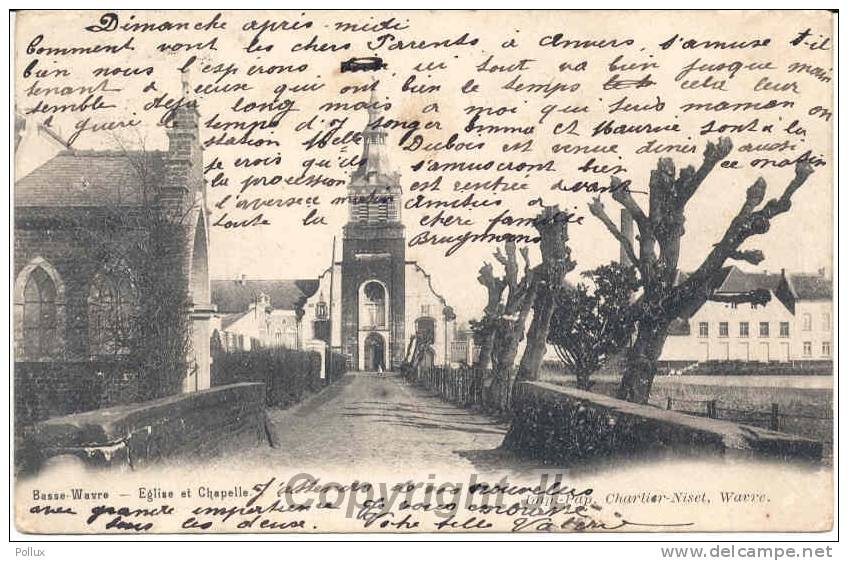 Dimanche après-midi
Comment vont les chers Parents à Anvers, s'amuse t-il
bien nous l'espérons ici tout va bien jusque main
tenant à ceux qui ont bien le temps cela leur
semble déjà long mais à moi qui suis maman on
n'a guère le temps d'y songer Emma et Maurice sont à la
station Melle Dubois est venue diner aussi
je crois qu'ils s'amuseront bien ce matin
la procession est rentrée devant
l'averse Amitiés à
toute la chère famille
Bruynmans
Basse-Wavre — Eglise et Chapelle.
Charlier-Niset, Wavre.
J'attends de nouvelles
avec grande impatience
tous les deux. Votre fille Valérie
Copyright
Pollux
www.delcampe.net